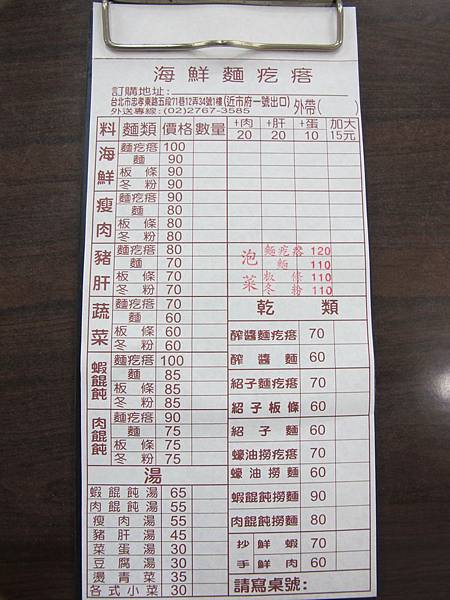 海鮮麵疙瘩
訂購地址:
台北市忠孝東路五段71巷12弄34號1樓(近市府一號出口)
外送專線:(02)2767-3585 外帶( )
料 麵類 價格 數量 +肉20 +肝20 +蛋10 加大15元
海鮮 麵疙瘩 100
麵 90
板條 90
冬粉 90
瘦肉 麵疙瘩 90
麵 80
板條 80
冬粉 80
豬肝 麵疙瘩 80
麵 70
板條 70
冬粉 70
蔬菜 麵疙瘩 70
麵 60
板條 60
冬粉 60
蝦餛飩 麵疙瘩 100
麵 85
板條 85
冬粉 85
肉餛飩 麵疙瘩 90
麵 75
板條 75
冬粉 75
湯
蝦餛飩湯 65
肉餛飩湯 55
瘦肉湯 55
豬肝湯 45
菜蛋湯 30
豆腐湯 30
燙青菜 35
各式小菜 30
泡菜 麵疙瘩 120
麵 110
板條 110
冬粉 110
乾類
醡醬麵疙瘩 70
醡醬麵 60
紹子麵疙瘩 70
紹子板條 60
紹子麵 60
蠔油撈疙瘩 70
蠔油撈麵 60
蝦餛飩撈麵 90
肉餛飩撈麵 80
抄鮮蝦 70
手鮮肉 60
請寫桌號: